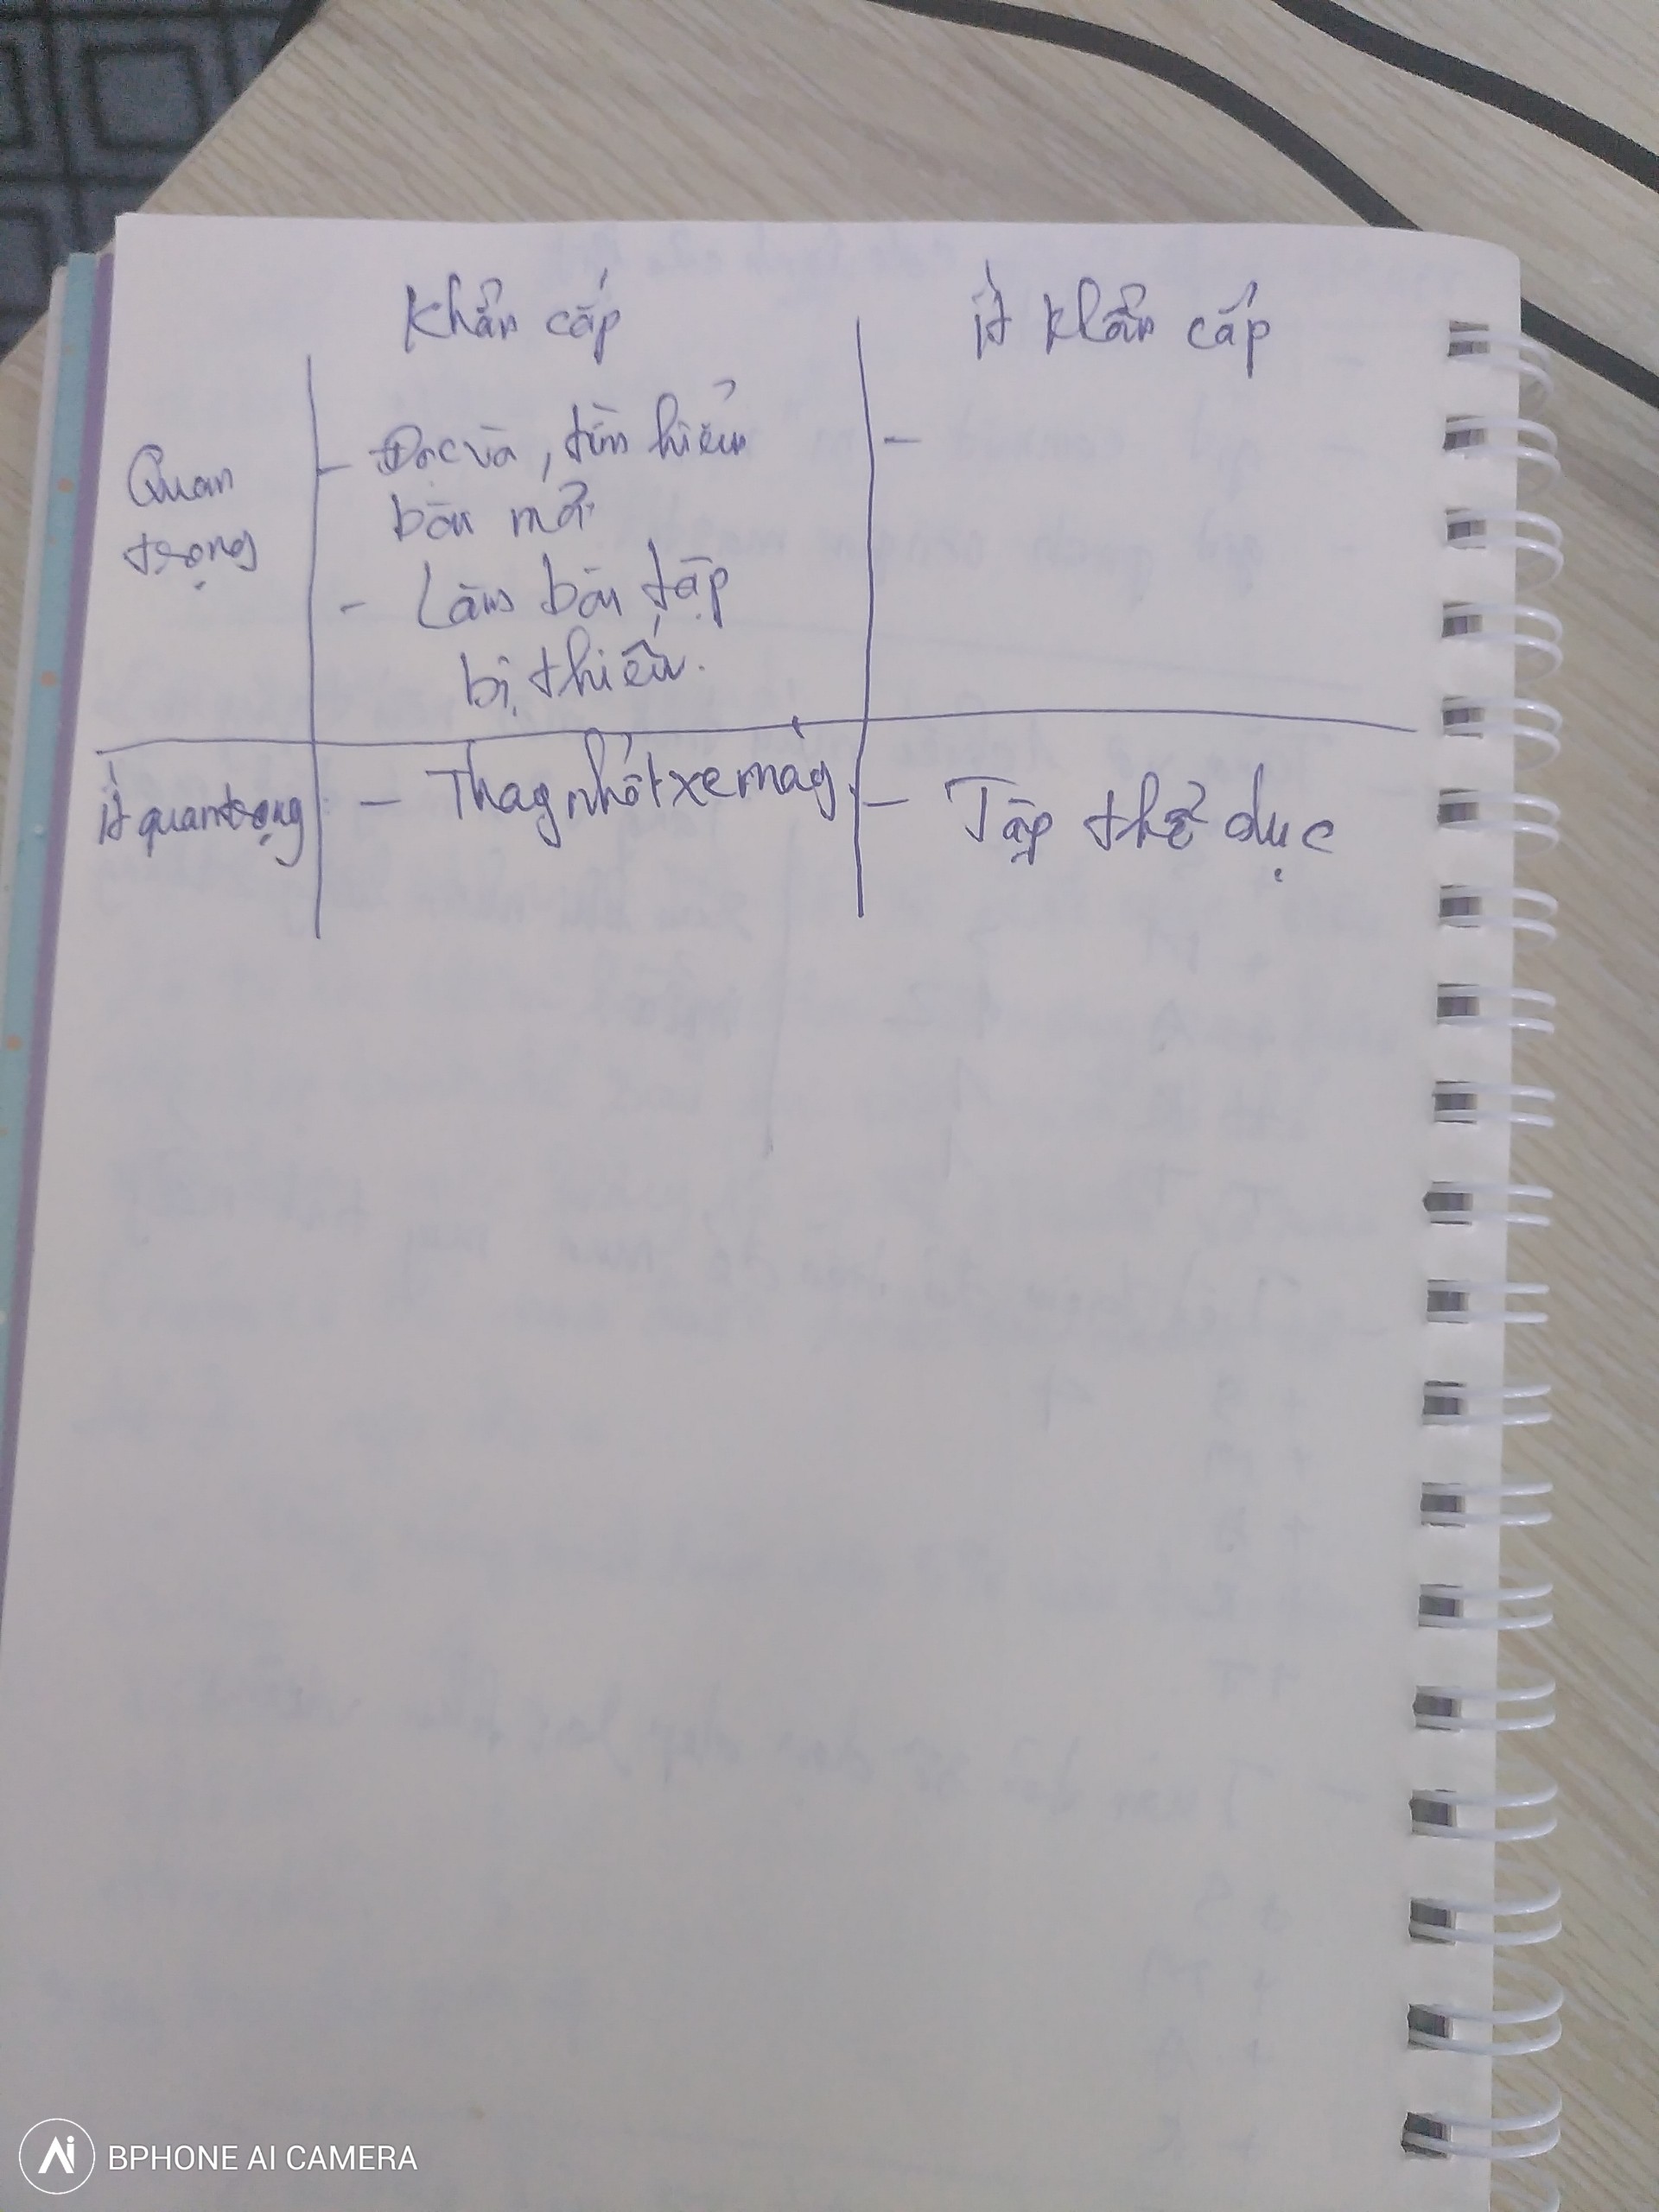 Khẩn cấp
ít khẩn cấp
Quan
trọng
- Đọc và, tìm hiểu
bài mới
- Làm bài tập
bị thiếu.
-
ít quan trọng
- Thay nhớt xe máy.
- Tập thể dục
BPHONE AI CAMERA